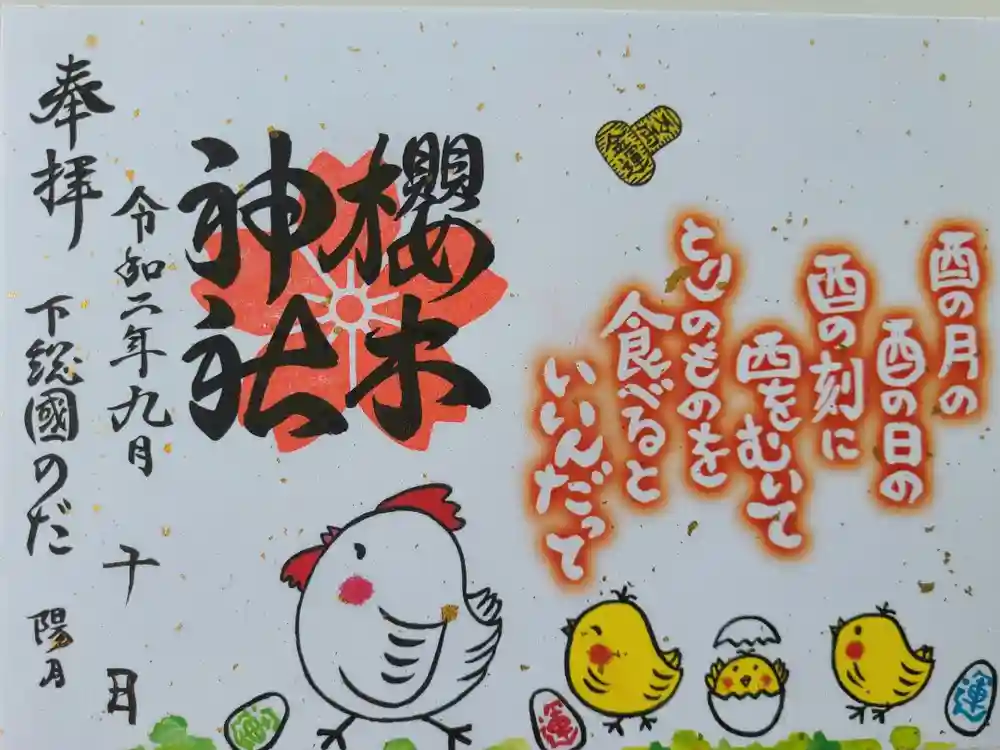 酉の月の
酉の日の
酉の刻に
西をむいて
とりのものを
食べると
いいんだって
櫻木
神社
令和二年九月
十
日
奉拝
下総國のだ
陽月
運
運